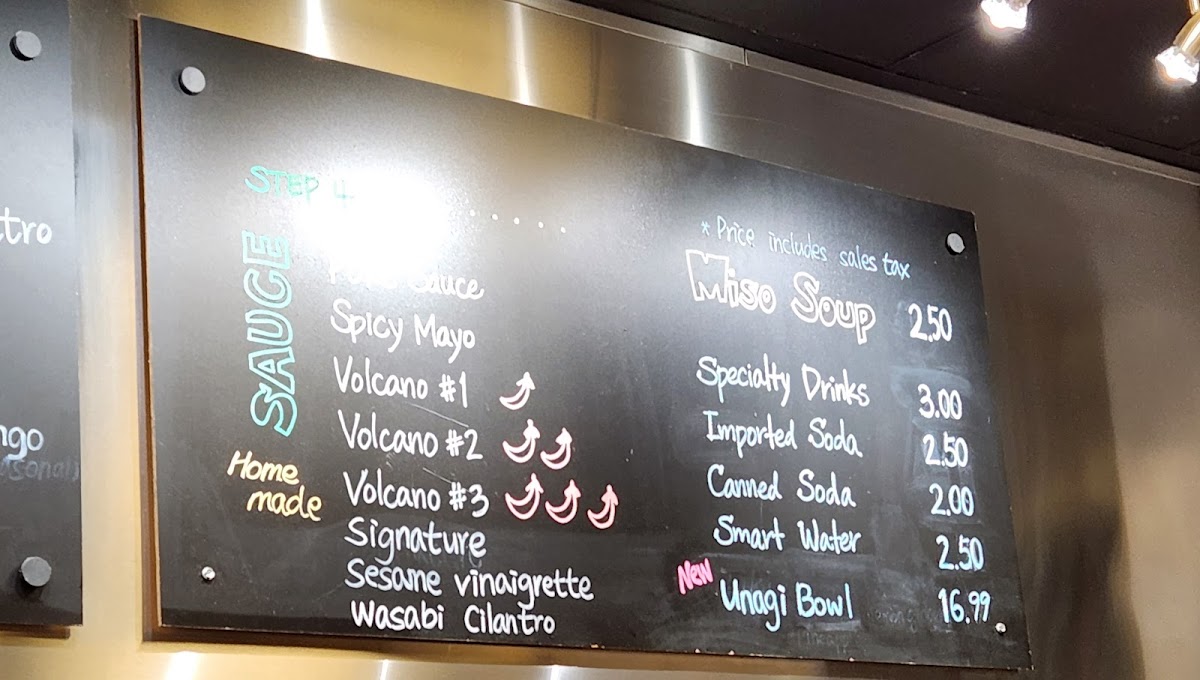 ttro
ngo
STEP 4
SAUCE
Home
made
Sauce
Spicy Mayo
Volcano #1
Volcano #2
Volcano #3
Signature
Sesame vinaigrette
Wasabi Cilantro
* Price includes sales tax
Miso Soup 2.50
Specialty Drinks 3.00
Imported Soda 2.50
Canned Soda 2.00
Smart Water 2.50
New Unagi Bowl 16.99